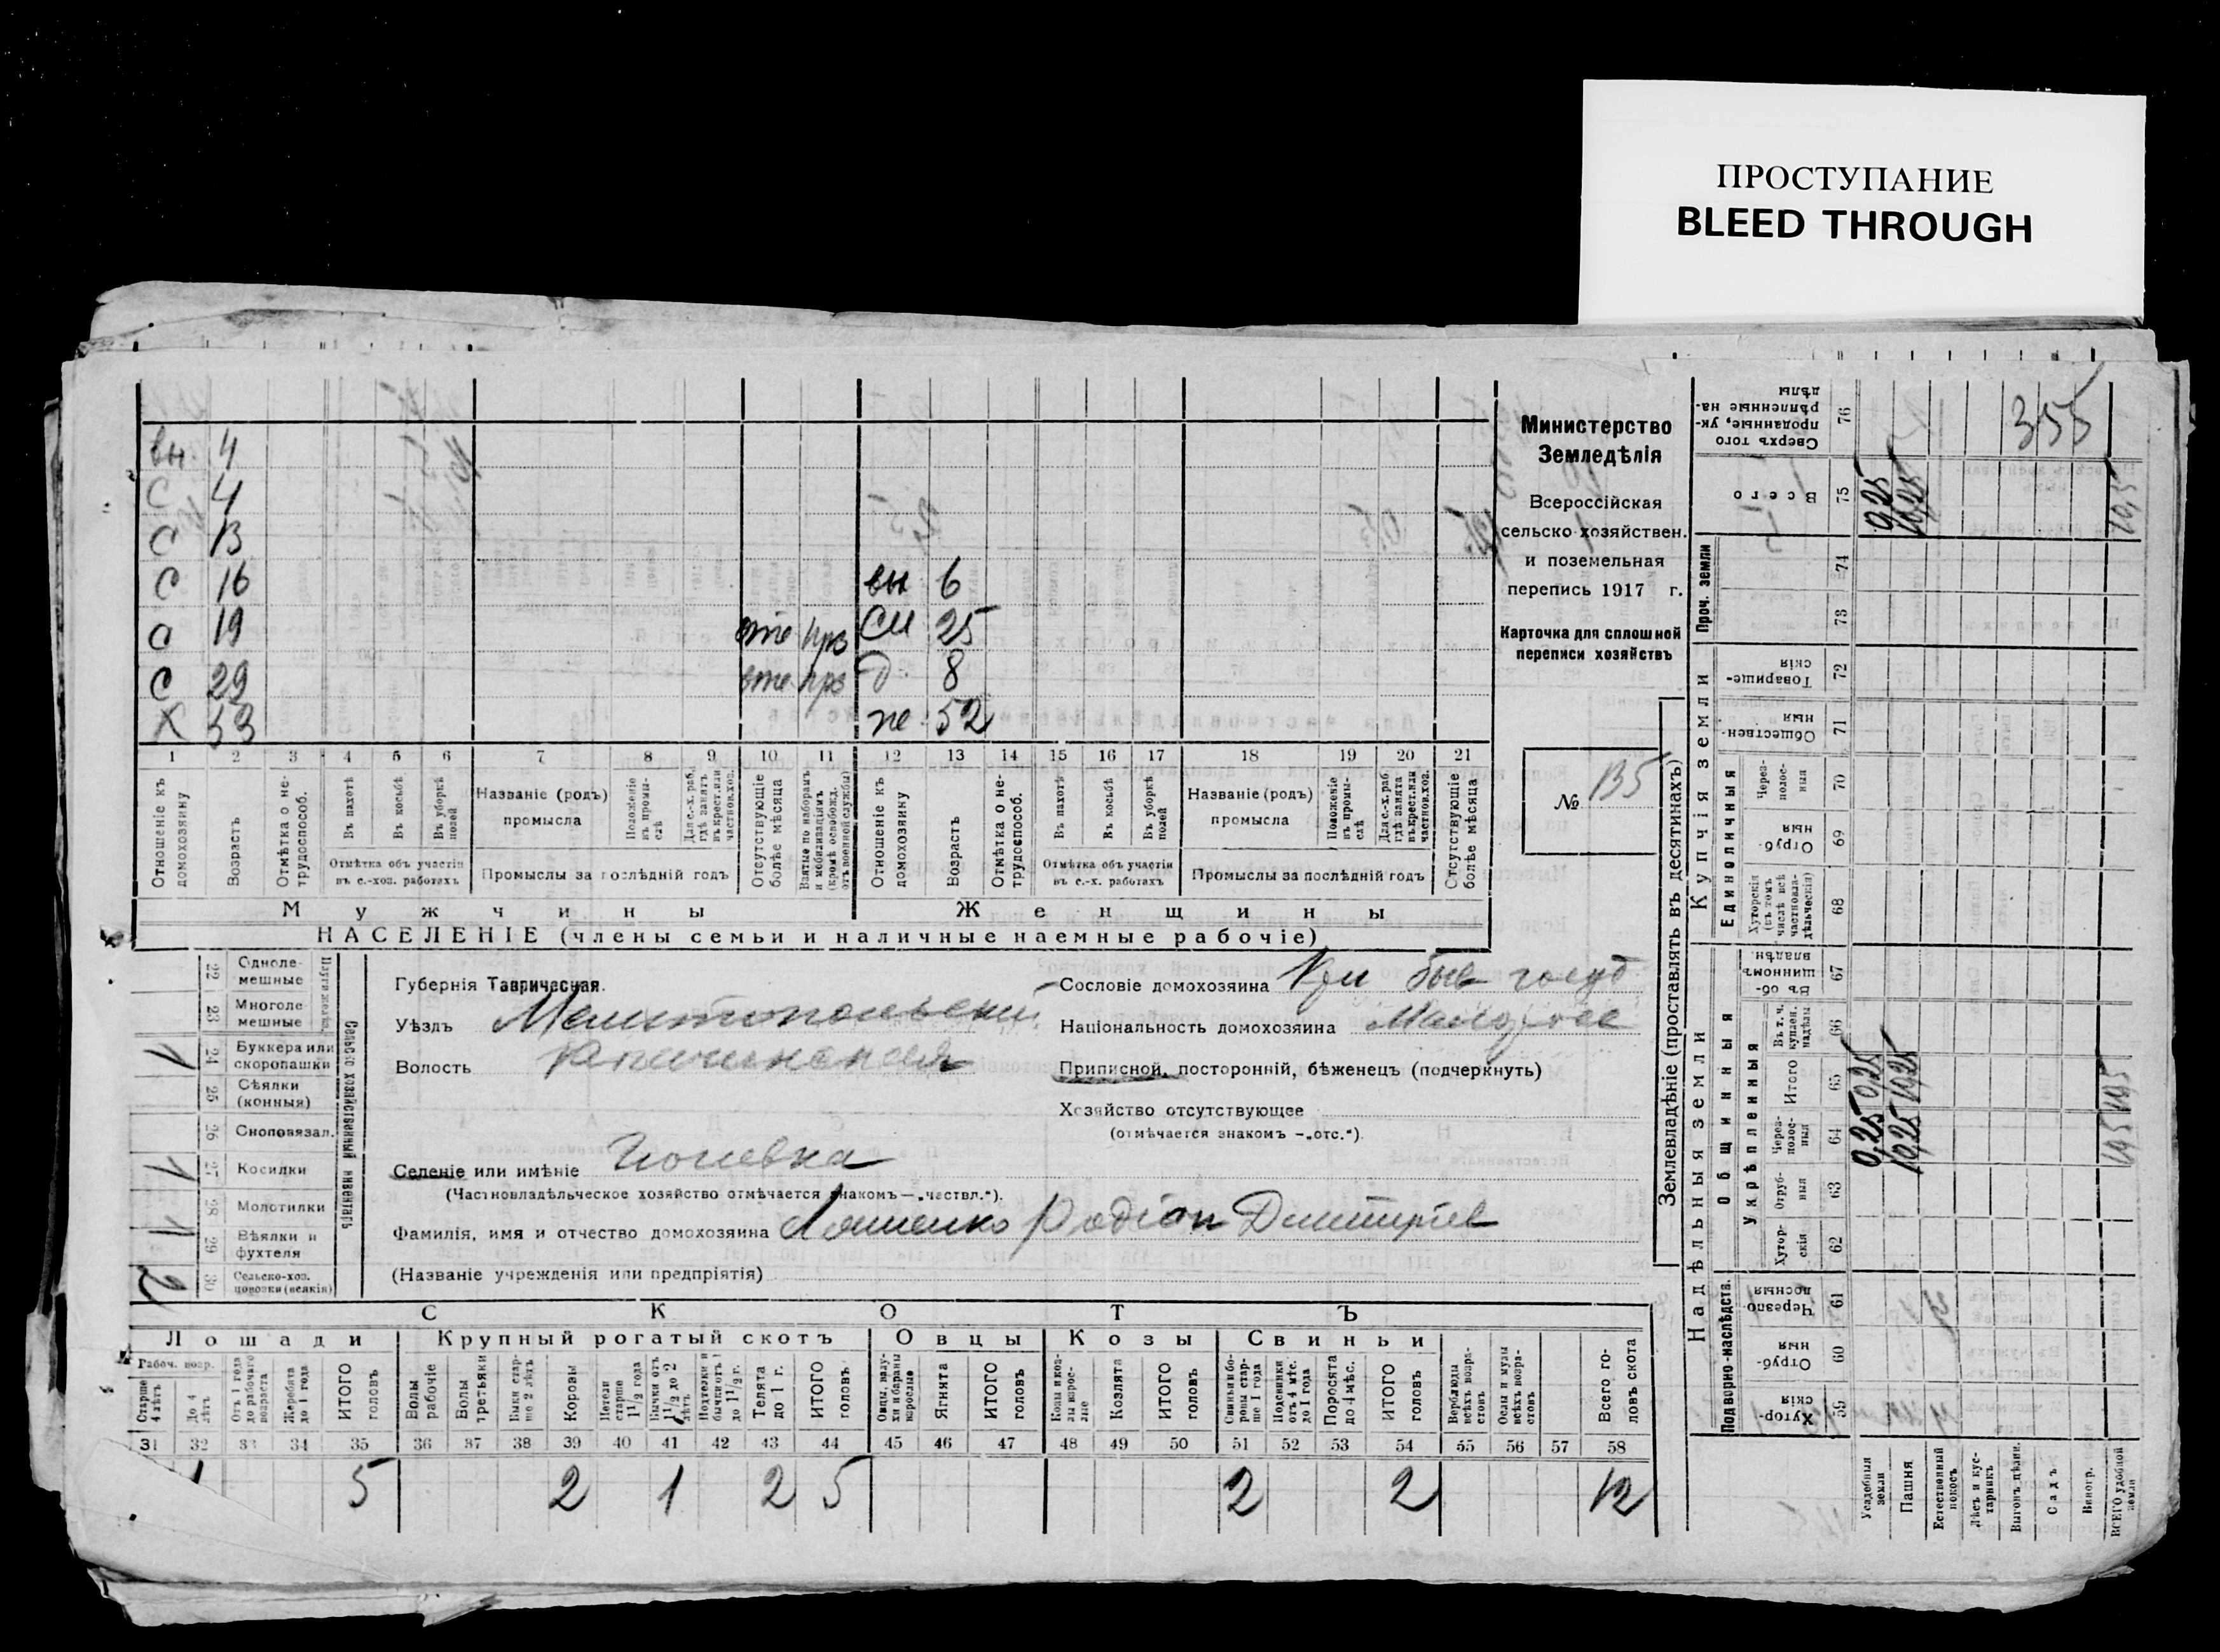 ПРОСТУПАНИЕ
BLEED THROUGH
вн. 4
С 4
С 13
С 16
С 19 отс прз
С 29 отс прз
Х 53
вн 6
сн 25
д. 8
же. 52
1 2 3 4 5 6 7 8 9 10 11 12 13 14 15 16 17 18 19 20 21
Отношеніе къ домохозяину
Возрастъ
Отмѣтка о нетрудоспособ.
Въ пахотѣ
Въ косьбѣ
Въ уборкѣ полей
Отмѣтка объ участіи въ с.-хоз. работахъ
Названіе (родъ) промысла
Положеніе въ промыслѣ
Для с.-х. раб. гдѣ занятъ въ крест. или частнов. хоз.
Промыслы за послѣдній годъ
Отсутствующіе болѣе мѣсяца
Взятые по наборамъ и мобилизаціямъ (кромѣ освобожд. отъ военной службы)
Отношеніе къ домохозяину
Возрастъ
Отмѣтка о нетрудоспособ.
Въ пахотѣ
Въ косьбѣ
Въ уборкѣ полей
Отмѣтка объ участіи въ с.-х. работахъ
Названіе (родъ) промысла
Положеніе въ промыслѣ
Для с.-х. раб. гдѣ занята въ крест. или частнов. хоз.
Промыслы за послѣдній годъ
Отсутствующіе болѣе мѣсяца
Мужчины
Женщины
НАСЕЛЕНІЕ (члены семьи и наличные наемные рабочіе)
Министерство
Земледѣлія
Всероссійская
сельско-хозяйствен.
и поземельная
перепись 1917 г.
Карточка для сплошной
переписи хозяйствъ
№ 135
22 Одноле-мешные
23 Многоле-мешные
1 24 Буккера или скоропашки
25 Сѣялки (конныя)
26 Сноповязал.
1 27 Косилки
28 Молотилки
1 29 Вѣялки и фухтеля
2 30 Сельско-хоз. повозки (всякія)
Сельско хозяйственный инвентарь
Губернія Таврическая.
Уѣздъ Мелитопольскій
Волость
Селеніе или имѣніе
(Частновладѣльческое хозяйство отмѣчается знакомъ—„частвл.“).
Фамилія, имя и отчество домохозяина Родіон Дмитріев
(Названіе учрежденія или предпріятія)
Сословіе домохозяина Кр. быв. госуд
Національность домохозяина Малоросс
Приписной, посторонній, бѣженецъ (подчеркнуть)
Хозяйство отсутствующее
(отмѣчается знакомъ -„отс.“).
СКОТЪ
Лошади
Крупный рогатый скотъ
Овцы
Козы
Свиньи
Рабоч. возр.
Старше 4 лѣтъ
До 4 лѣтъ
Отъ 1 года до рабочаго возраста
Жеребята до 1 года
ИТОГО головъ
Волы рабочіе
Волы третьяки
Быки старше 2 лѣтъ
Коровы
Нетели старше 1 1/2 года
Бычки отъ 1 1/2 до 2 лѣтъ
Подтелки и бычки отъ 1 до 1 1/2 г.
Телята до 1 г.
ИТОГО головъ
Овцы, валухи и бараны взрослые
Ягнята
ИТОГО головъ
Козы и козлы взрослые
Козлята
ИТОГО головъ
Свиньи и боровы старше 1 года
Подсвинки отъ 4 мѣс. до 1 года
Поросята до 4 мѣс.
ИТОГО головъ
Верблюды всѣхъ возрастовъ
Ослы и мулы всѣхъ возрастовъ
Всего головъ скота
31 32 33 34 35 36 37 38 39 40 41 42 43 44 45 46 47 48 49 50 51 52 53 54 55 56 57 58
1 5 2 1 2 5 2 2 12
Землевладѣніе (проставлять въ десятинахъ)
Надѣльныя земли
Купчія земли
Проч. земли
Подворно-наслѣдств.
Общинныя
Укрѣпленныя
Единоличныя
Сверхъ того проданные, укрѣпленные надѣлы 76 355
Всего 75 0,25 10,25 10,5
74
73
Товарищескія 72
Общественныя 71
Черезполосныя 70
Отрубныя 69
Хуторскія (въ томъ числѣ всѣ частновладѣльческія) 68
Въ общинномъ владѣн. 67
Въ т. ч. куплен. надѣлы 66
Итого 65 0,25 10,25 10,5
Черезполосныя 64 0,25 10,25 10,5
Отрубныя 63
Хуторскія 62
Черезполосныя 61
Отрубныя 60
Хуторскія 59
Усадебныя земли
Пашня
Естественный покосъ
Лѣсъ и кустарникъ
Выгонъ цѣлин.
Садъ
Виногр.
ВСЕГО удобной земли